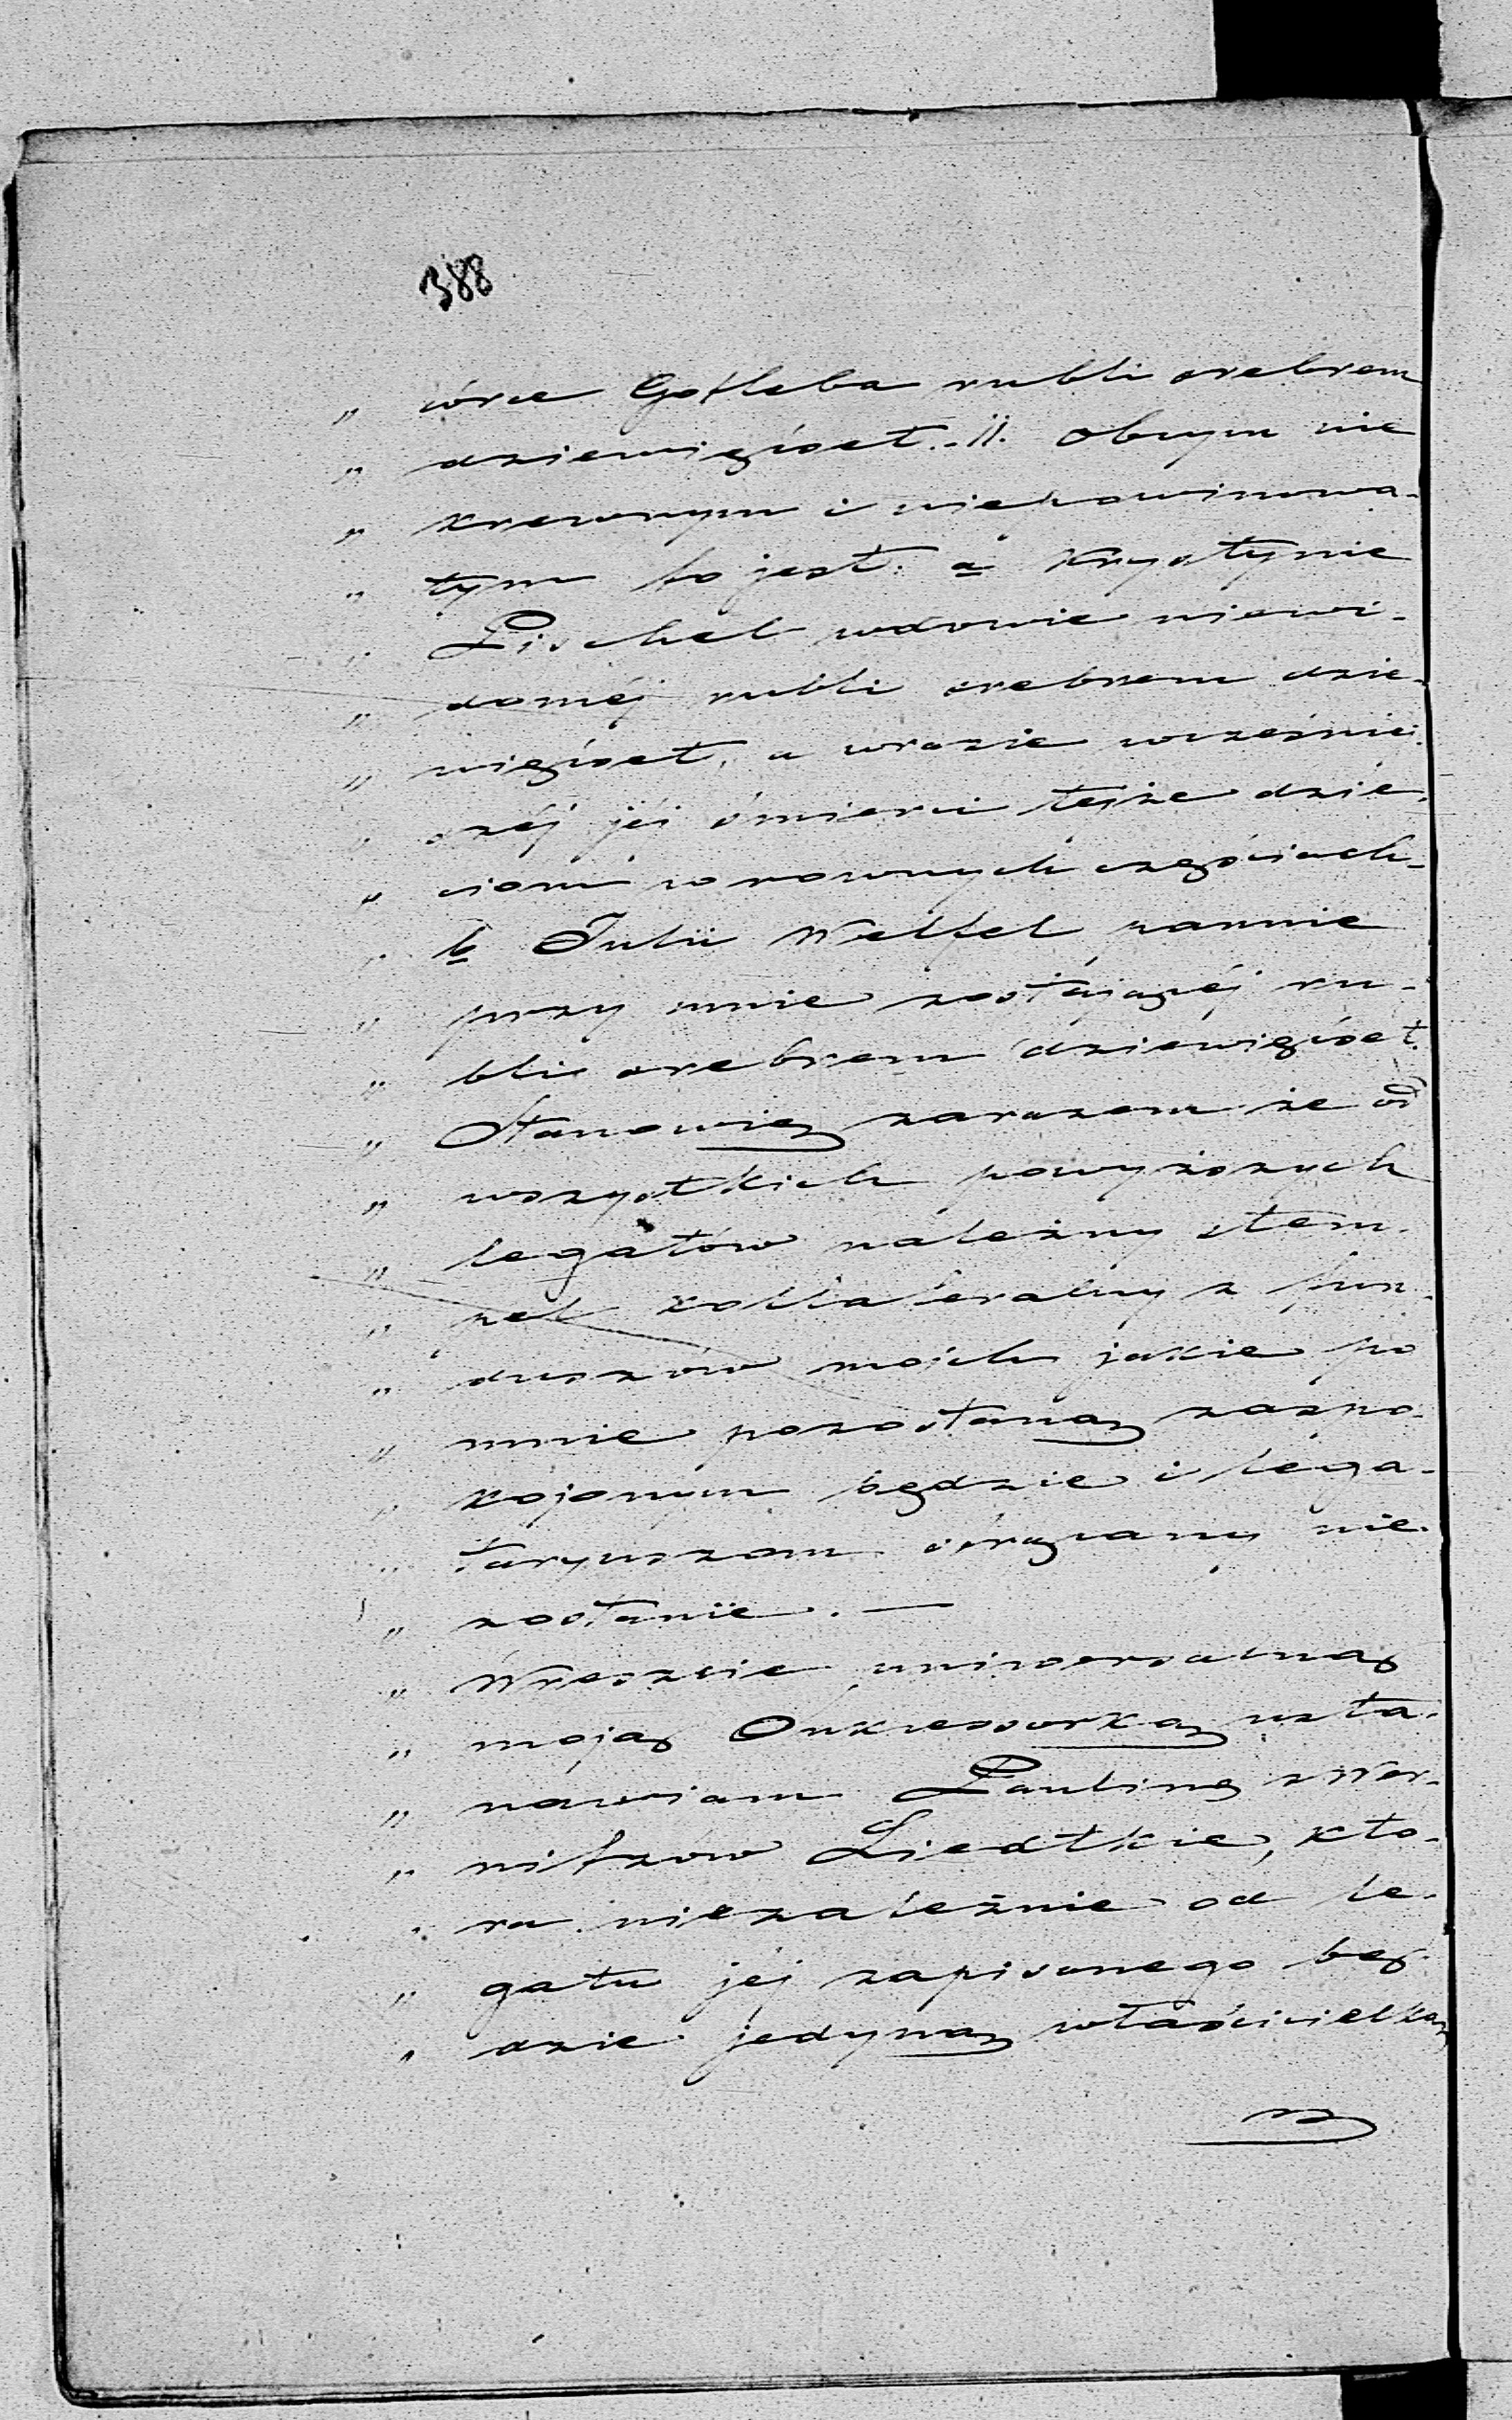 388
„ córce Gotleba rubli srebrem
„ dziewięćset. II. Obcym nie
„ krewnym i niepowinowa-
„ tym to jest: a Krystynie
„ Pischel wdowie niewi-
„ doméj rubli srebrem dzie-
„ więćset, a wrazie wcześniej-
„ széj jéj śmierci tejże dzie-
„ ciom w rownych częściach-
„ b Julii Welfel pannie
„ przy mnie zostającéj ru-
„ bli srebrem dziewięćset.
„ Stanowię zarazem że od
„ wszystkich powyższych
„ legatów należny stem-
„ pel kollateralny z fun-
„ duszów moich jakie po
„ mnie pozostaną zaspo-
„ kojonym będzie i lega-
„ taryuszom strącany nie-
„ zostanie. —
„ Wreszcie uniwersalną
„ moją Sukcessorką usta-
„ nawiam Paulinę z Wer-
„ nitzów Liedtkie, któ-
„ ra niezależnie od le-
„ gatu jéj zapisanego bę-
„ dzie jedyną właścicielką